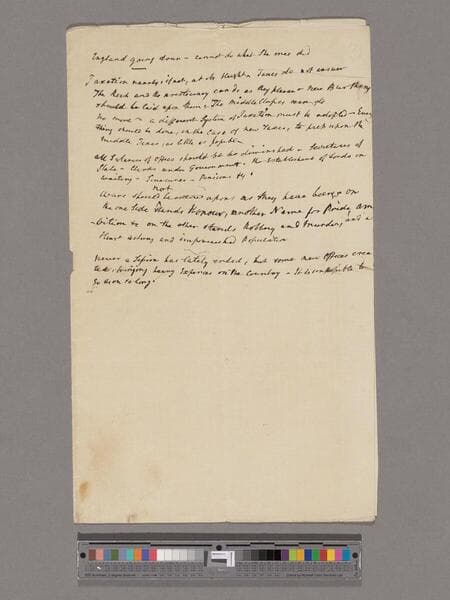 England going down - cannot do what She once did
Taxation nearly, if not, at its Height - Taxes do not answer
The Rich and the mercenary can do as they please - New Burthens
should be laid upon them. The middle Classes, can do
no more - a different System of Taxation must be adopted - Every
thing should be done, in the Case of new Taxes, to press upon the
middle Ones, as little as possible
All Salaries of Offices should be diminished - Secretaries of
State - Clerks under Government. The Establishment of Lords in
Waiting - Sinecures - Pensions &c
not
Wars should be entered upon as they have been, on
the one Side stands Honour, another Name for Pride, am
-bition &c on the other stands Robbery and Murder, and a
Heart aching and impoverished Population
Never a Session has lately ended, but some new Offices crea
ted, bringing heavy Expences on the Country - It is impossible to
go on so long.